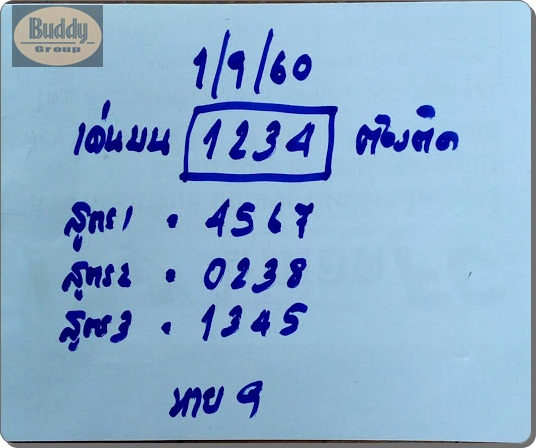 Buddy
Group
1/9/60
เด่นบน 1234 ต้องติด
สูตร1 = 4567
สูตร2 = 0238
สูตร3 = 1345
หาย 9